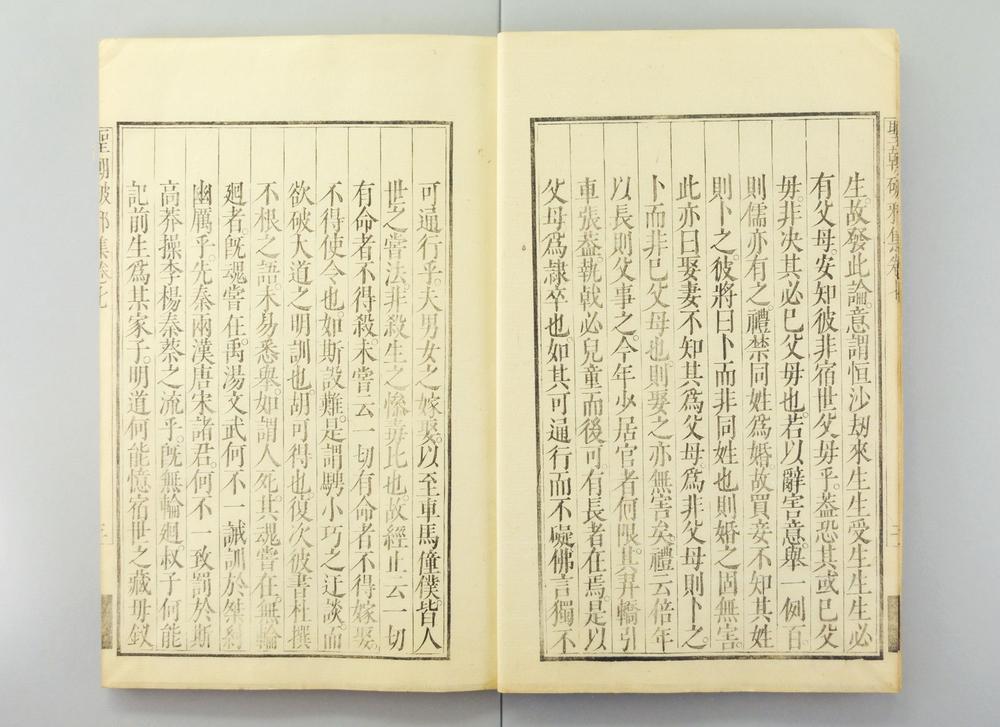 聖朝破邪集卷七
生。故發此論。意謂恒沙劫來生生受生生生必
有父母。安知彼非宿世父母乎。蓋恐其或已父
母。非决其必已父母也。若以辭害意。舉一例百
則儒亦有之。禮禁同姓爲婚。故買妾不知其姓
則卜之。彼將曰卜而非同姓也則婚之固無害。
此亦曰娶妻不知其爲父母。爲非父母則卜之。
卜而非已父母也則娶之亦無害矣。禮云倍年
以長則父事之。今年少居官者何限。其舁轎引
車張蓋執戟必兒童而後可。有長者在焉是以
父母爲隷卒也。如其可通行而不礙佛言獨不
可通行乎。夫男女之嫁娶。以至車馬僮僕。皆人
世之嘗法。非殺生之慘毒比也。故經止云一切
有命者不得殺。未嘗云一切有命者不得嫁娶。
不得使令也。如斯設難。是謂騁小巧之迂談。而
欲破大道之明訓也。胡可得也。復次彼書杜撰
不根之語。未易悉舉。如謂人死。其魂嘗在。無輪
廻者。旣魂嘗在。禹湯文武何不一誡訓於桀紂
幽厲乎。先秦兩漢唐宋諸君。何不一致罰於斯
高莽操李楊秦蔡之流乎。旣無輪廻。叔子何能
記前生爲某家子。明道何能憶宿世之藏母釵
聖朝破邪集卷七
三